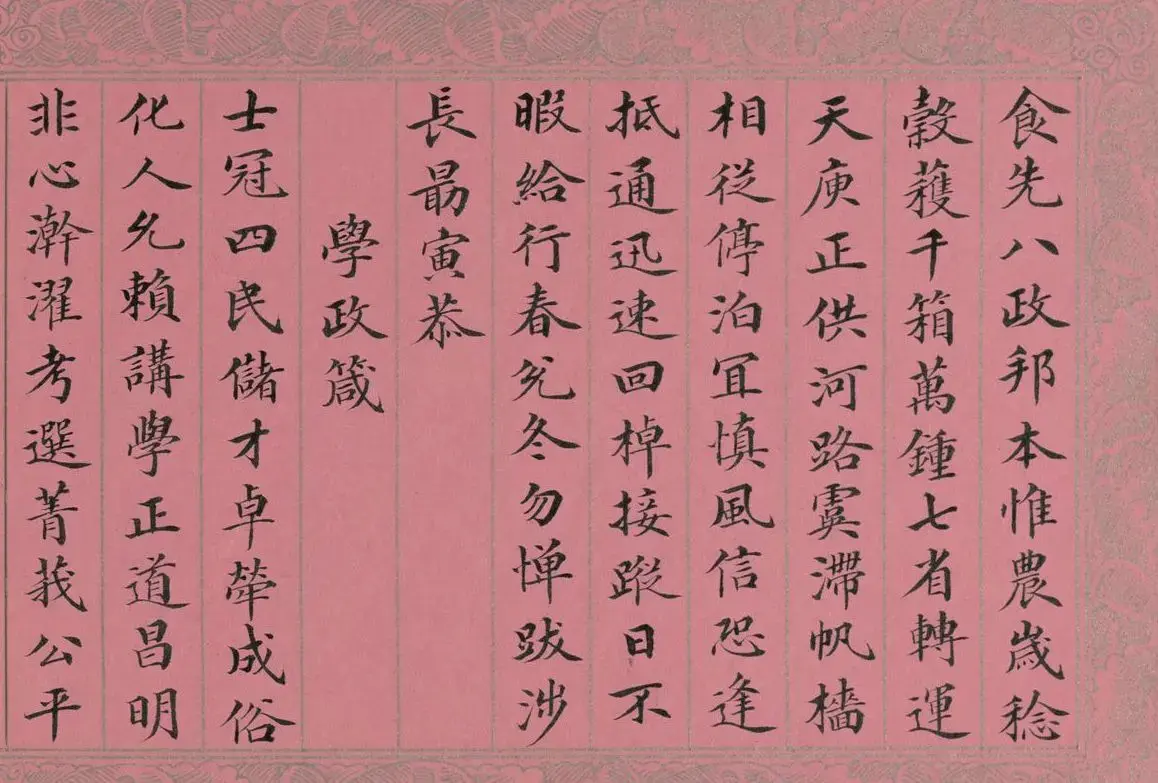 食先八政邦本惟農歲稔
穀穫千箱萬鍾七省轉運
天庾正供河路虞滯帆檣
相從停泊冝慎風信恐逢
抵通迅速回棹接蹤日不
暇給行春兊冬勿憚跋涉
長勗寅恭
學政箴
士冠四民儲才卓犖成俗
化人允賴講學正道昌明
非心澣濯考選菁莪公平